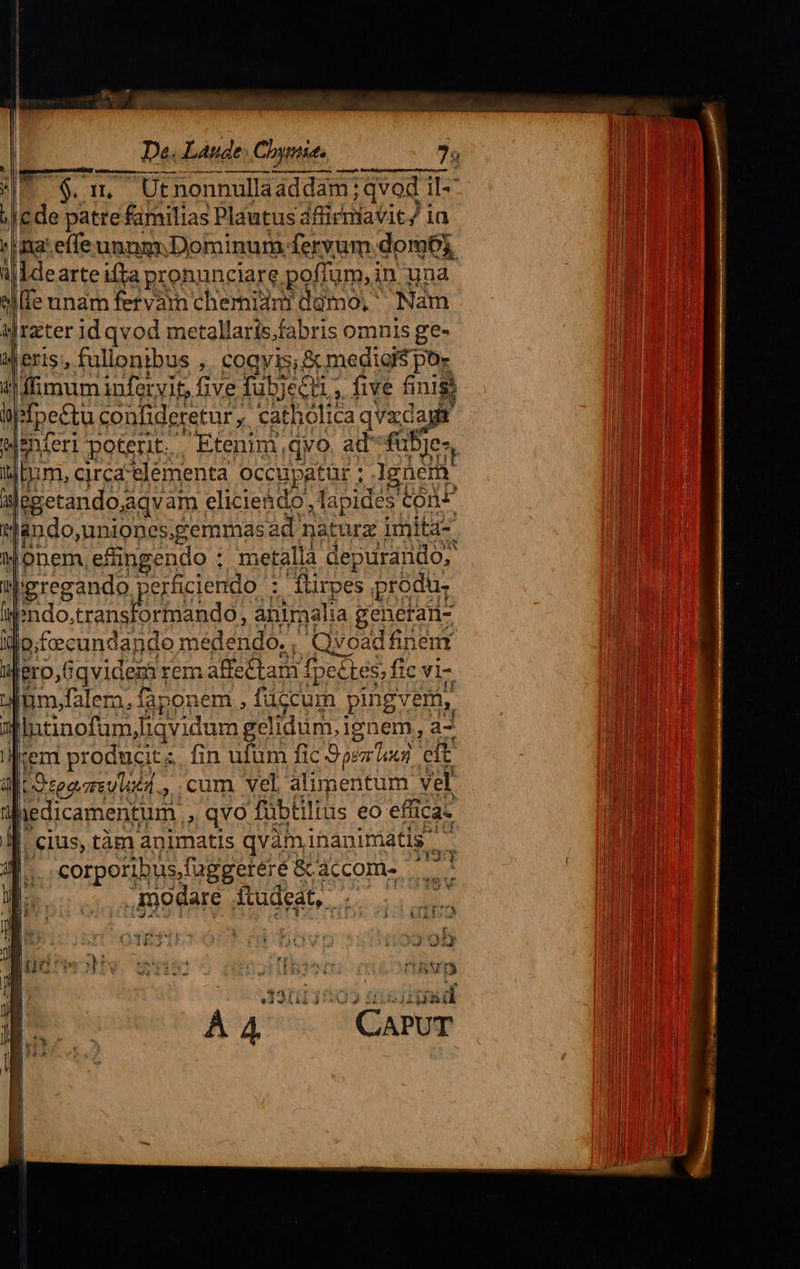 De. Laude Chymiæ. 7
§. II. Ut nonnulla addam; qvod il-
de patre familias Plautus affirmavit, in
na esse unum Dominum servum domo;
Id de arte ista pronunciare possum, in una
sse unam servam chemiam domo, Nam
ræter id qvod metallariis, fabris omnis ge-
eris, fullonibus, coqvis, & medicis po-
ssimum inservit, sive subjecti, sive finis
spectu consideretur, catholica qvædam
enseri poterit. Etenim, qvo ad subje-
tum, circa elementa occupatur; Ignem
egetando, aqvam eliciendo, lapides con-
ando, uniones, gemmas ad naturæ imita-
onem effingendo: metalla depurando,
gregando perficiendo: stirpes produ-
endo, transformando, animalia generan-
o, fœcundando medendo. Qvoad finem
ero, siqvidem rem affectam spectes, sic vi-
um, salem, saponem, succum pingvem,
lutinosum, liqvidum gelidum, ignem, a-
rem producit; sin usum sic θρεπτικὴ est
θεραπευτικὴ, cum vel alimentum vel
medicamentum, qvo subtilius eo effica-
cius, tàm animatis qvàm inanimatis
corporibus, suggerere & accom-
modare studeat,
A 4 CAPUT